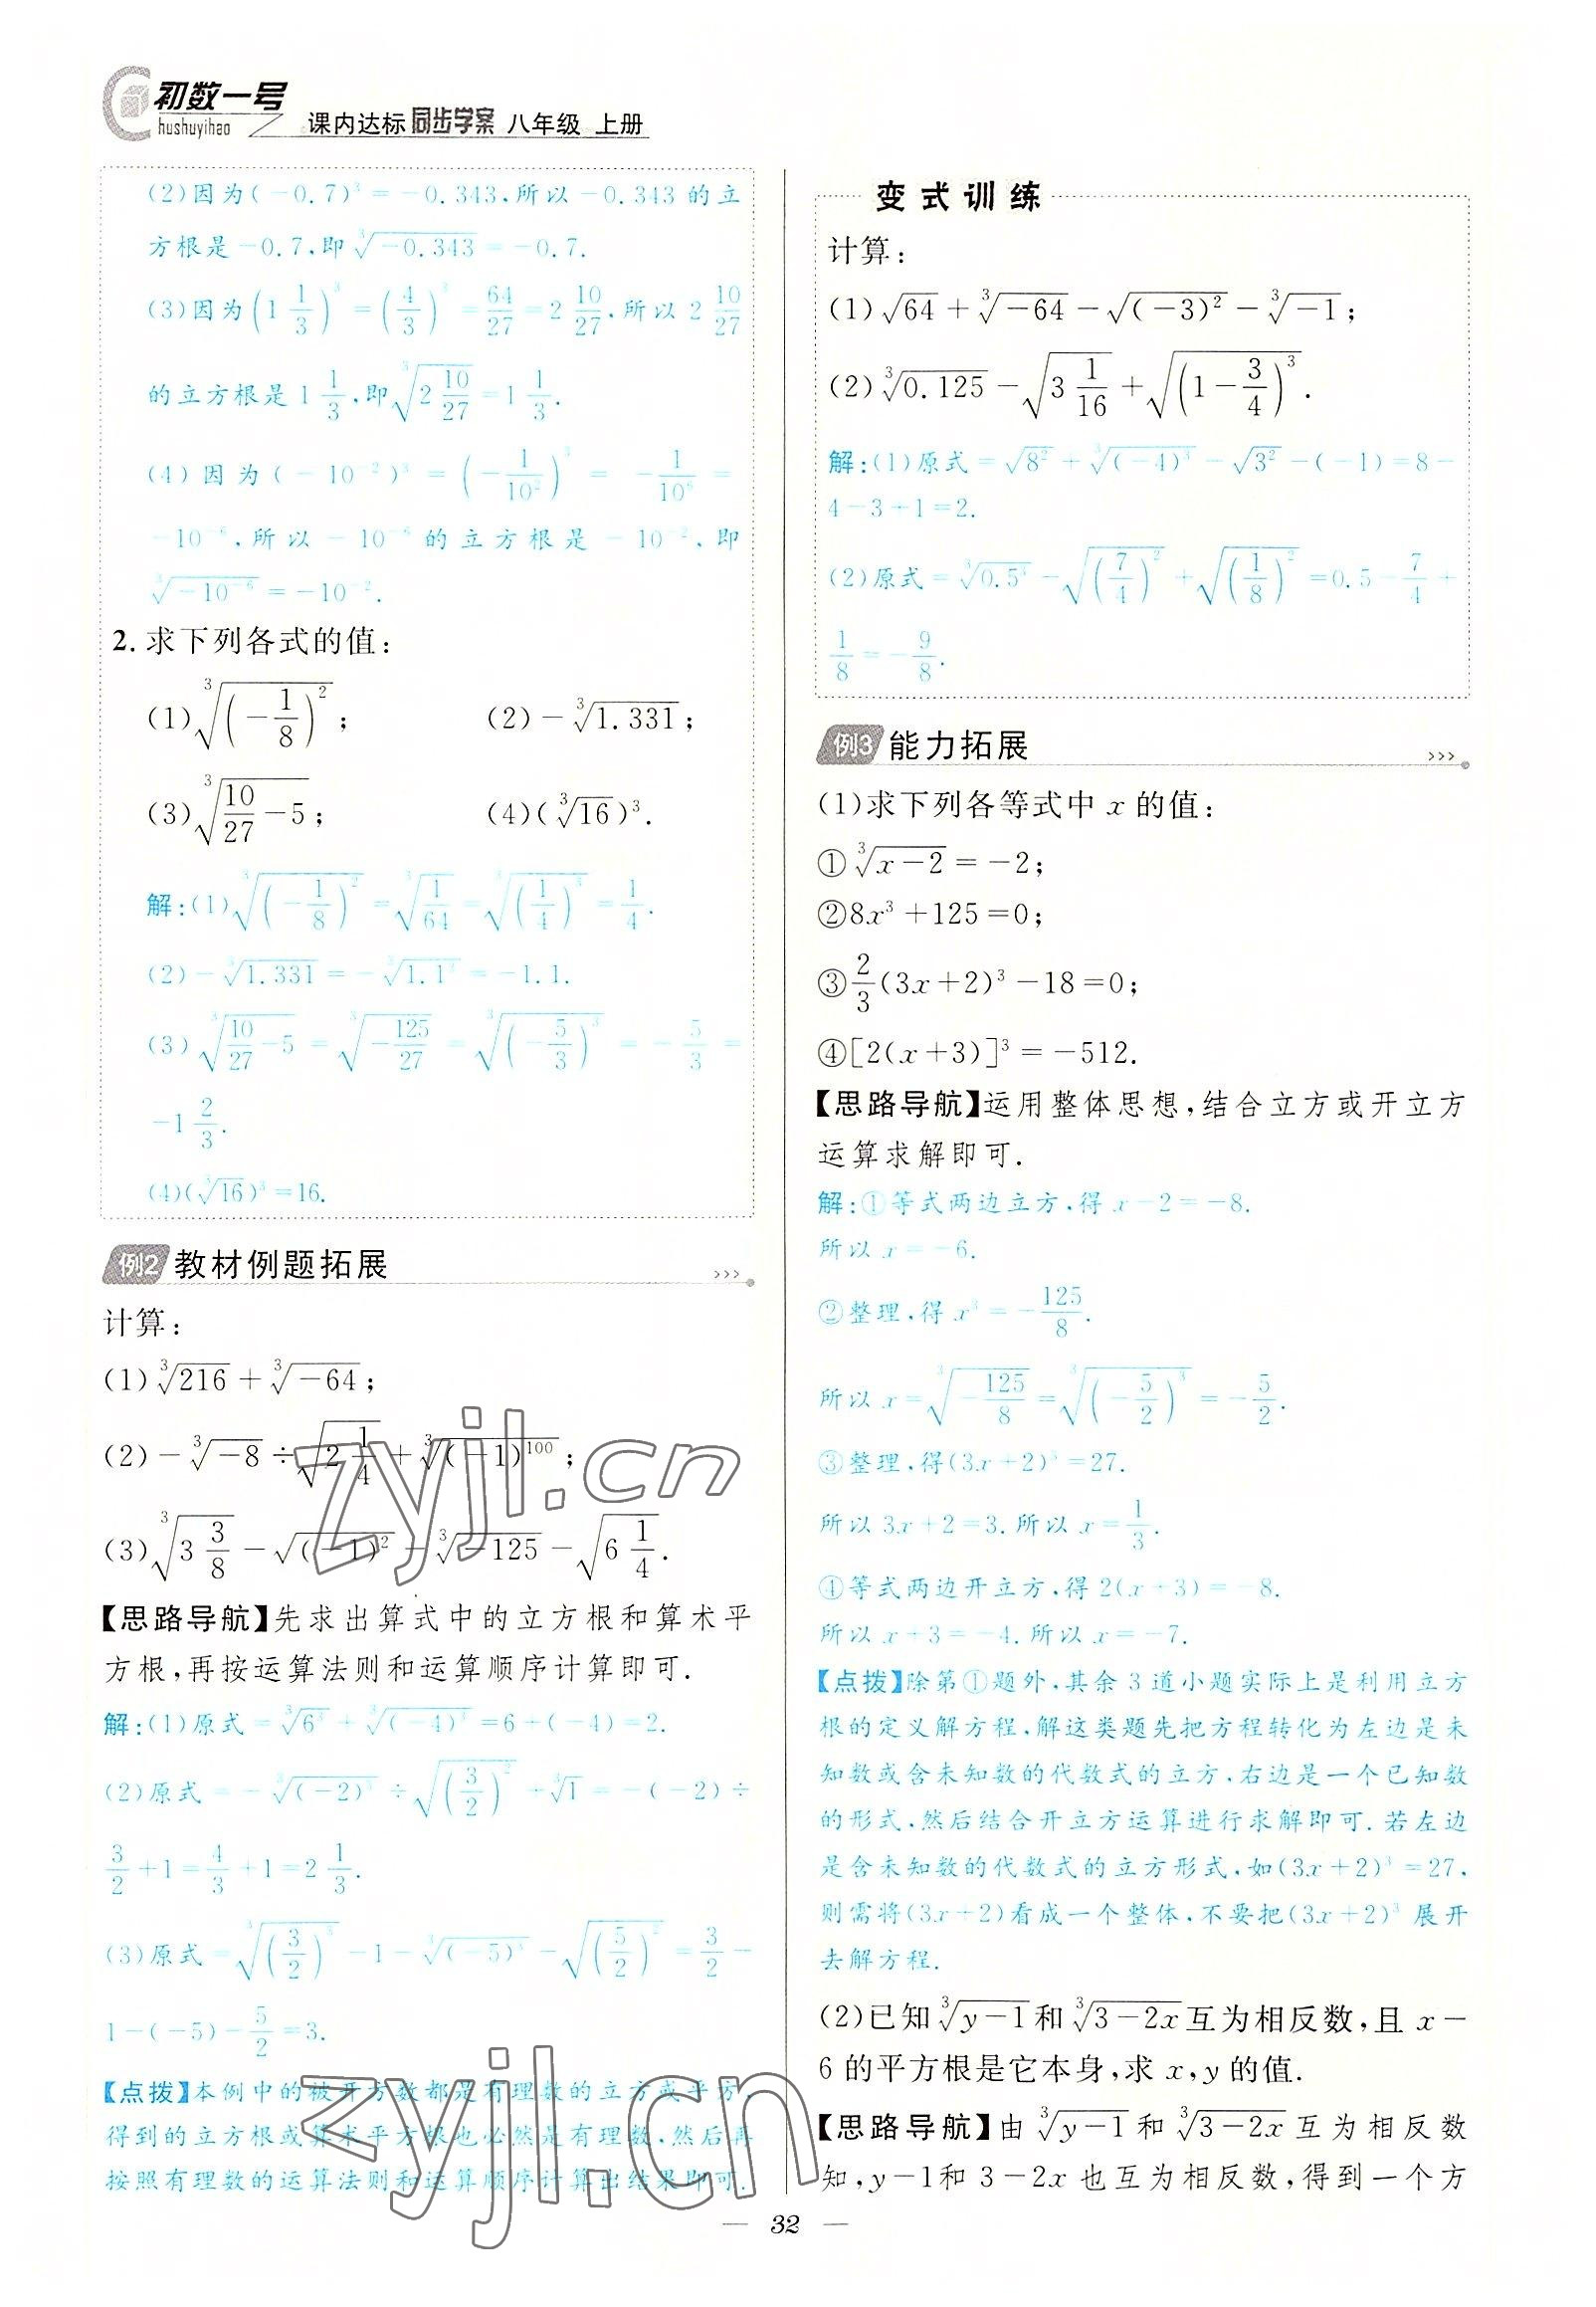 初数一号
hushuyihao
课内达标 同步学案 八年级 上册
(2)因为(-0.7)³=-0.343,所以-0.343的立
方根是-0.7,即∛(-0.343)=-0.7.
(3)因为(1 1/3)³=(4/3)³=64/27=2 10/27,所以2 10/27
的立方根是1 1/3,即∛(2 10/27)=1 1/3.
(4)因为(-10⁻²)³=(-1/10²)³=-1/10⁶=
-10⁻⁶,所以-10⁻⁶的立方根是-10⁻²,即
∛(-10⁻⁶)=-10⁻².
2.求下列各式的值:
(1)∛((-1/8)²); (2)-∛1.331;
(3)∛(10/27-5); (4)(∛16)³.
解:(1)∛((-1/8)²)=∛(1/64)=∛((1/4)³)=1/4.
(2)-∛1.331=-∛(1.1³)=-1.1.
(3)∛(10/27-5)=∛(-125/27)=∛((-5/3)³)=-5/3=
-1 2/3.
(4)(∛16)³=16.
例2 教材例题拓展 >>>
计算:
(1)∛216+∛(-64);
(2)-∛(-8)÷√(2 1/4)+∛((-1)¹⁰⁰);
(3)∛(3 3/8)-√((-1)²)-∛(-125)-√(6 1/4).
【思路导航】先求出算式中的立方根和算术平
方根,再按运算法则和运算顺序计算即可.
解:(1)原式=∛(6³)+∛((-4)³)=6+(-4)=2.
(2)原式=-∛((-2)³)÷√((3/2)²)+∛1=-(-2)÷
3/2+1=4/3+1=2 1/3.
(3)原式=∛((3/2)³)-1-∛((-5)³)-√((5/2)²)=3/2-
1-(-5)-5/2=3.
【点拨】本例中的被开方数都是有理数的立方或平方,
得到的立方根或算术平方根也必然是有理数,然后再
按照有理数的运算法则和运算顺序计算出结果即可.
变式训练
计算:
(1)√64+∛(-64)-√((-3)²)-∛(-1);
(2)∛0.125-√(3 1/16)+√((1-3/4)³).
解:(1)原式=√(8²)+∛((-4)³)-√(3²)-(-1)=8-
4-3+1=2.
(2)原式=∛(0.5³)-√((7/4)²)+√((1/8)²)=0.5-7/4+
1/8=-9/8.
例3 能力拓展 >>>
(1)求下列各等式中x的值:
①∛(x-2)=-2;
②8x³+125=0;
③2/3(3x+2)³-18=0;
④[2(x+3)]³=-512.
【思路导航】运用整体思想,结合立方或开立方
运算求解即可.
解:①等式两边立方,得x-2=-8.
所以x=-6.
②整理,得x³=-125/8.
所以x=∛(-125/8)=∛((-5/2)³)=-5/2.
③整理,得(3x+2)³=27.
所以3x+2=3.所以x=1/3.
④等式两边开立方,得2(x+3)=-8.
所以x+3=-4.所以x=-7.
【点拨】除第①题外,其余3道小题实际上是利用立方
根的定义解方程,解这类题先把方程转化为左边是未
知数或含未知数的代数式的立方,右边是一个已知数
的形式,然后结合开立方运算进行求解即可.若左边
是含未知数的代数式的立方形式,如(3x+2)³=27,
则需将(3x+2)看成一个整体,不要把(3x+2)³展开
去解方程.
(2)已知∛(y-1)和∛(3-2x)互为相反数,且x-
6的平方根是它本身,求x,y的值.
【思路导航】由∛(y-1)和∛(3-2x)互为相反数
知,y-1和3-2x也互为相反数,得到一个方
— 32 —
zyjl.cn
zyjl.cn